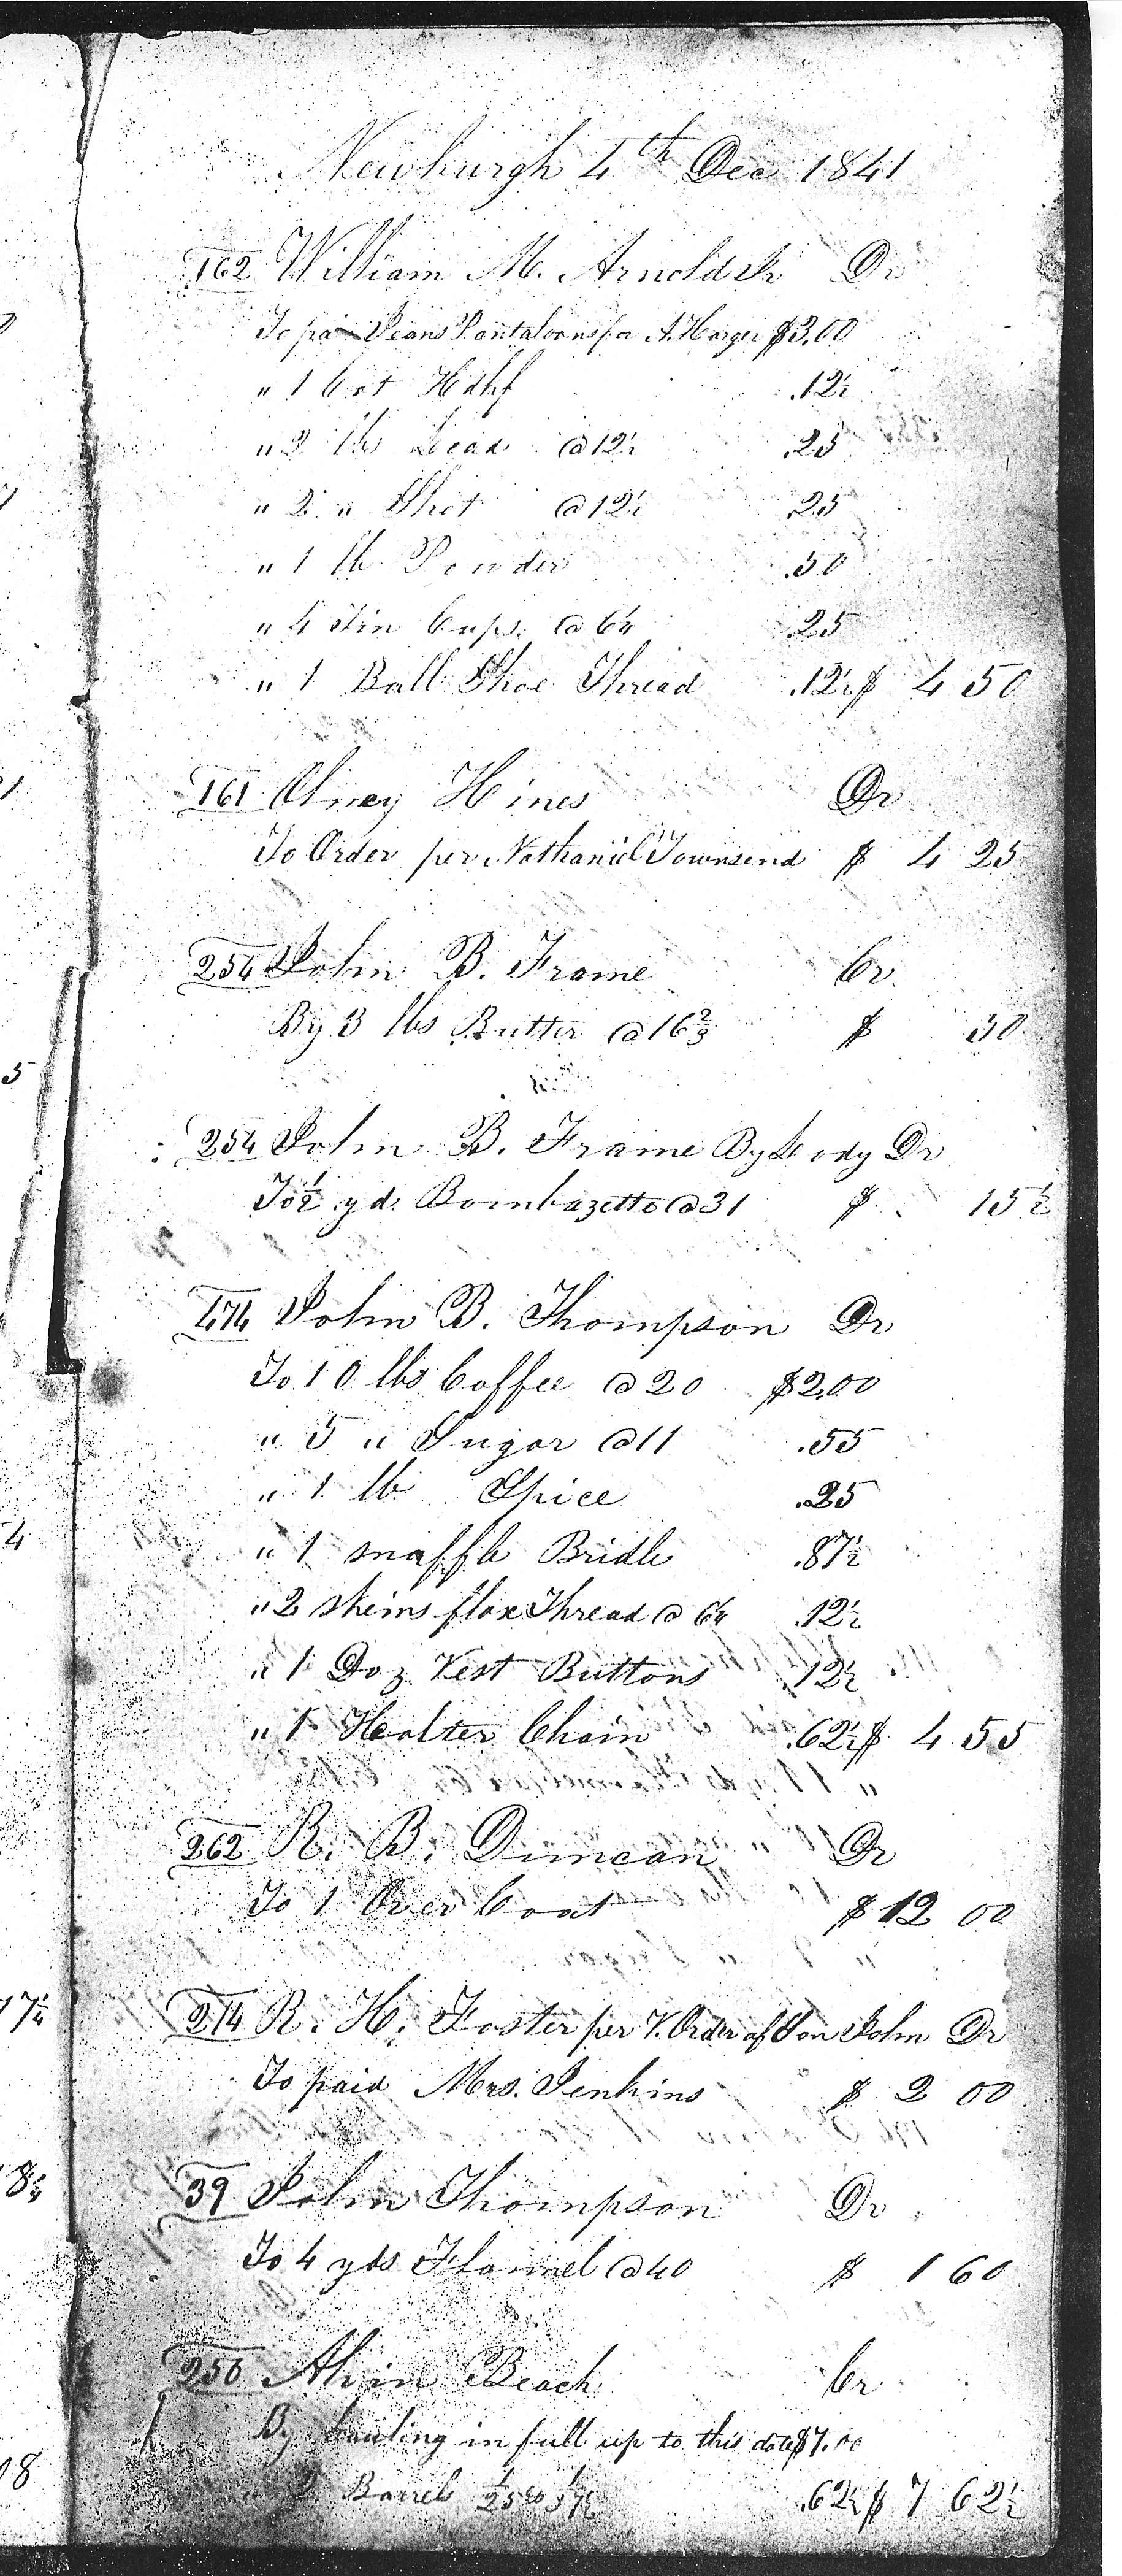 Newburgh 4th Dec 1841
162 William M. Arnold Sr Dr
To pa Jeans Pantaloons for A. Harger $3.00
" 1 Cot Hdkf .12½
" 2 lb Lead @12½ .25
" 2 " Shot @12½ .25
" 1 lb Powder .50
" 4 Tin Cups @6¼ .25
" 1 Ball Shoe Thread .12½ $ 4 50
161 Olney Hines Dr
To Order per Nathaniel Townsend $ 4 25
254 John B. Frame Cr.
By 3 lbs Butter @16⅔ $ 50
254 John B. Frame By Dr
To ½ yd. Bombazette @31 $ 15½
474 John B. Thompson Dr
To 10 lbs Coffee @20 $2.00
" 5 " Sugar @11 .55
" 1 lb Spice .25
" 1 snaffle Bridle .87½
" 2 skeins flax Thread @ 6¼ .12½
" 1 Doz Vest Buttons .12½
" 1 Halter Chain .62½ $ 4 55
262 R. B. Duncan Dr
To 1 Over Coat $ 12 00
274 R. H. Foster per V. Order of Son John Dr
To paid Mrs. Jenkins $ 2 00
39 John Thompson Dr
To 4 yds Flannel @40 $ 1 60
256 Alvin Beach Cr
By hauling in full up to this date $7.00
2 Barrels .62½ $ 7 62½
5
4
17¼
18